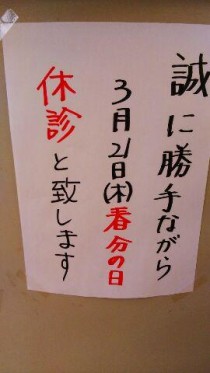 誠に勝手ながら
3月21日(木)春分の日
休診と致します